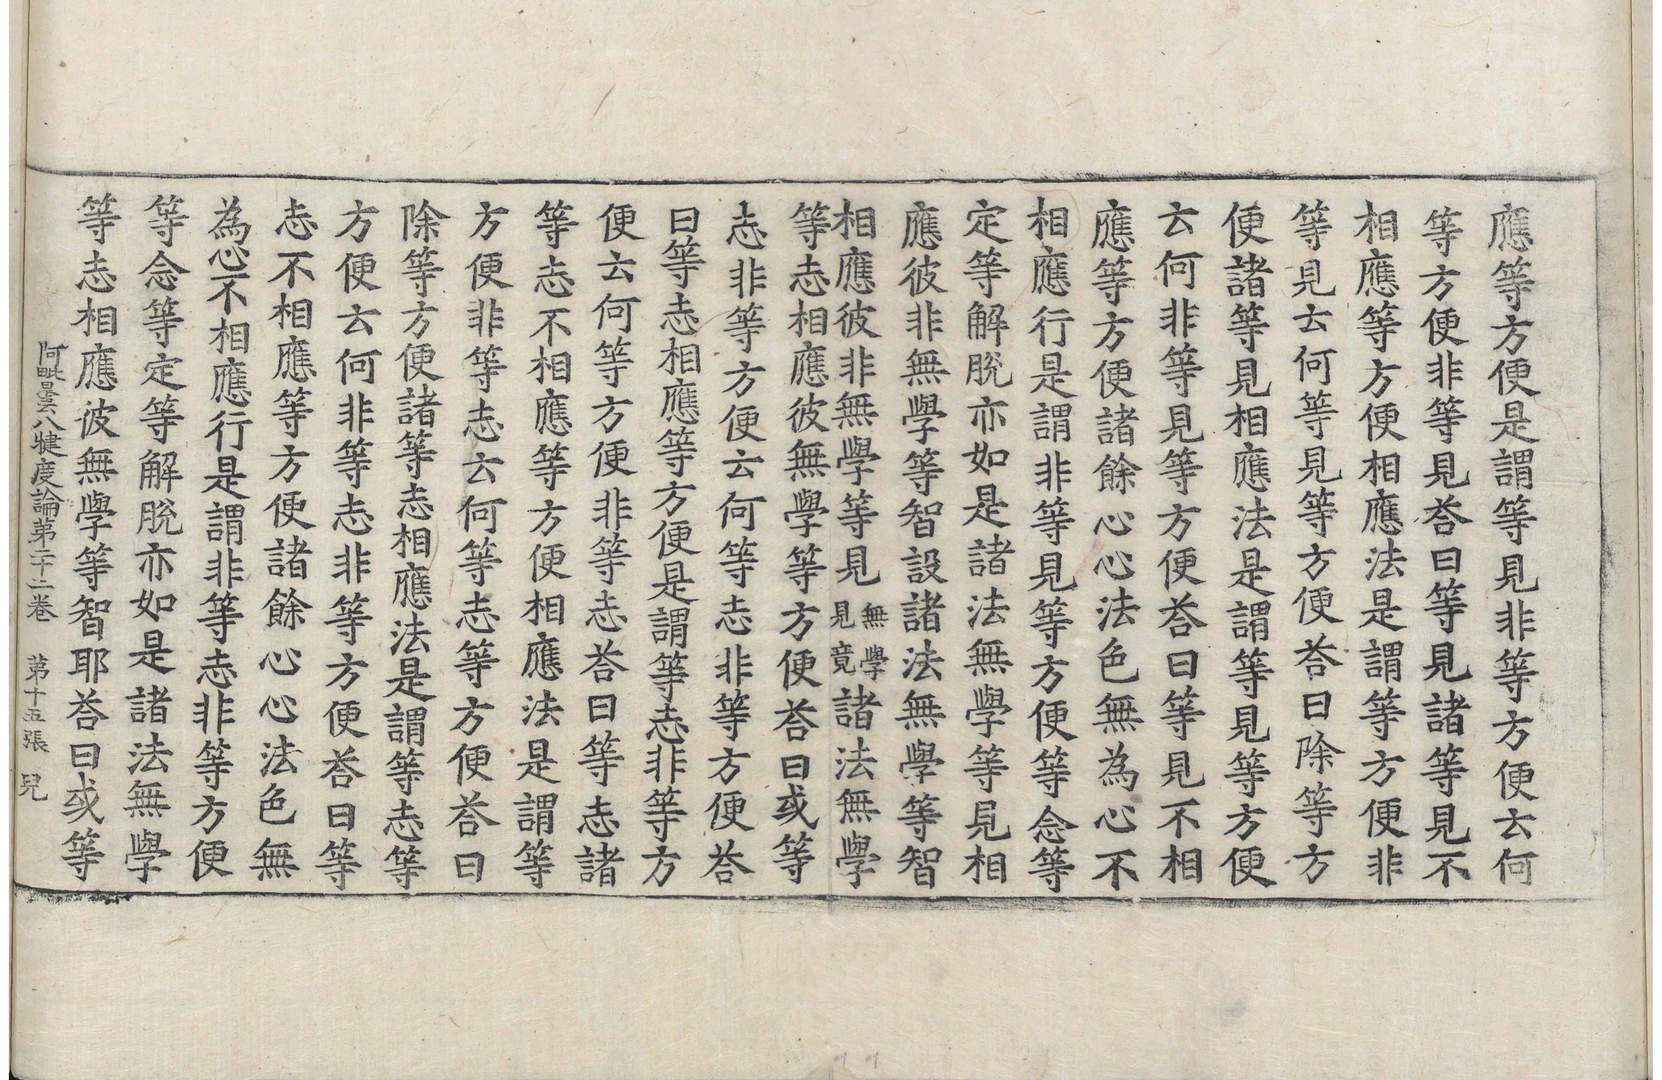 應等方便是謂等見非等方便云何
等方便非等見荅曰等見諸等見不
相應等方便相應法是謂等方便非
等見云何等見等方便荅曰除等方
便諸等見相應法是謂等見等方便
云何非等見等方便荅曰等見不相
應等方便諸餘心心法色無為心不
相應行是謂非等見等方便等念等
定等解脫亦如是諸法無學等見相
應彼非無學等智設諸法無學等智
相應彼非無學等見無學見竟諸法無學
等志相應彼無學等方便荅曰或等
志非等方便云何等志非等方便荅
曰等志相應等方便是謂等志非等方
便云何等方便非等志荅曰等志諸
等志不相應等方便相應法是謂等
方便非等志云何等志等方便荅曰
除等方便諸等志相應法是謂等志等
方便云何非等志非等方便荅曰等
志不相應等方便諸餘心心法色無
為心不相應行是謂非等志非等方便
等念等定等解脫亦如是諸法無學
等志相應彼無學等智耶荅曰或等
阿毗曇八犍度論第二十二卷 第十五張 兒